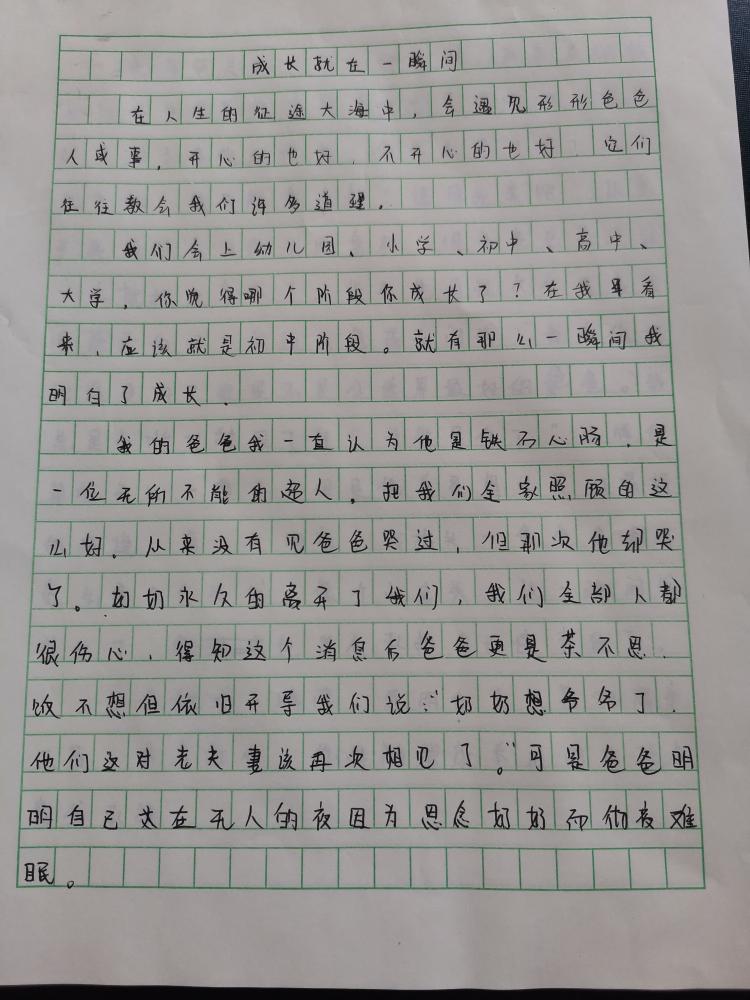 成长就在一瞬间
在人生的征途大海中，会遇见形形色色
人或事，开心的也好，不开心的也好，它们
往往教会我们许多道理。
我们会上幼儿园、小学、初中、高中、
大学，你觉得哪个阶段你成长了？在我早看
来，应该就是初中阶段。就有那么一瞬间我
明白了成长．
我的爸爸我一直认为他是铁石心肠，是
一位无所不能的超人，把我们全家照顾的这
么好．从来没有见爸爸哭过，但那次他却哭
了。奶奶永久的离开了我们，我们全部人都
很伤心，得知这个消息后爸爸更是茶不思．
饭不想但依旧开导我们说：“奶奶想爷爷了．
他们这对老夫妻该再次相见了。”可是爸爸明
明自己在无人的夜因为思念奶奶而彻夜难
眠。